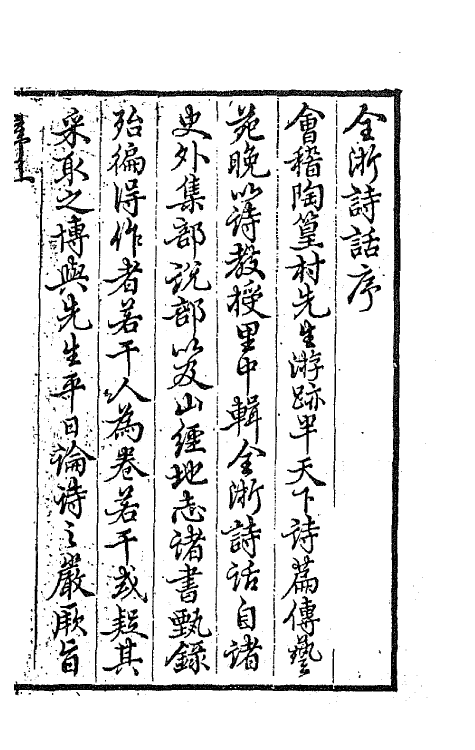 全浙詩話序
會稽陶篁村先生游跡半天下詩篇傳藝
苑晚以詩教授里中輯全浙詩話自諸
史外集部說部以及山經地志諸書甄錄
殆徧得作者若干人為卷若干或疑其
采取之博與先生平日論詩之嚴厥旨